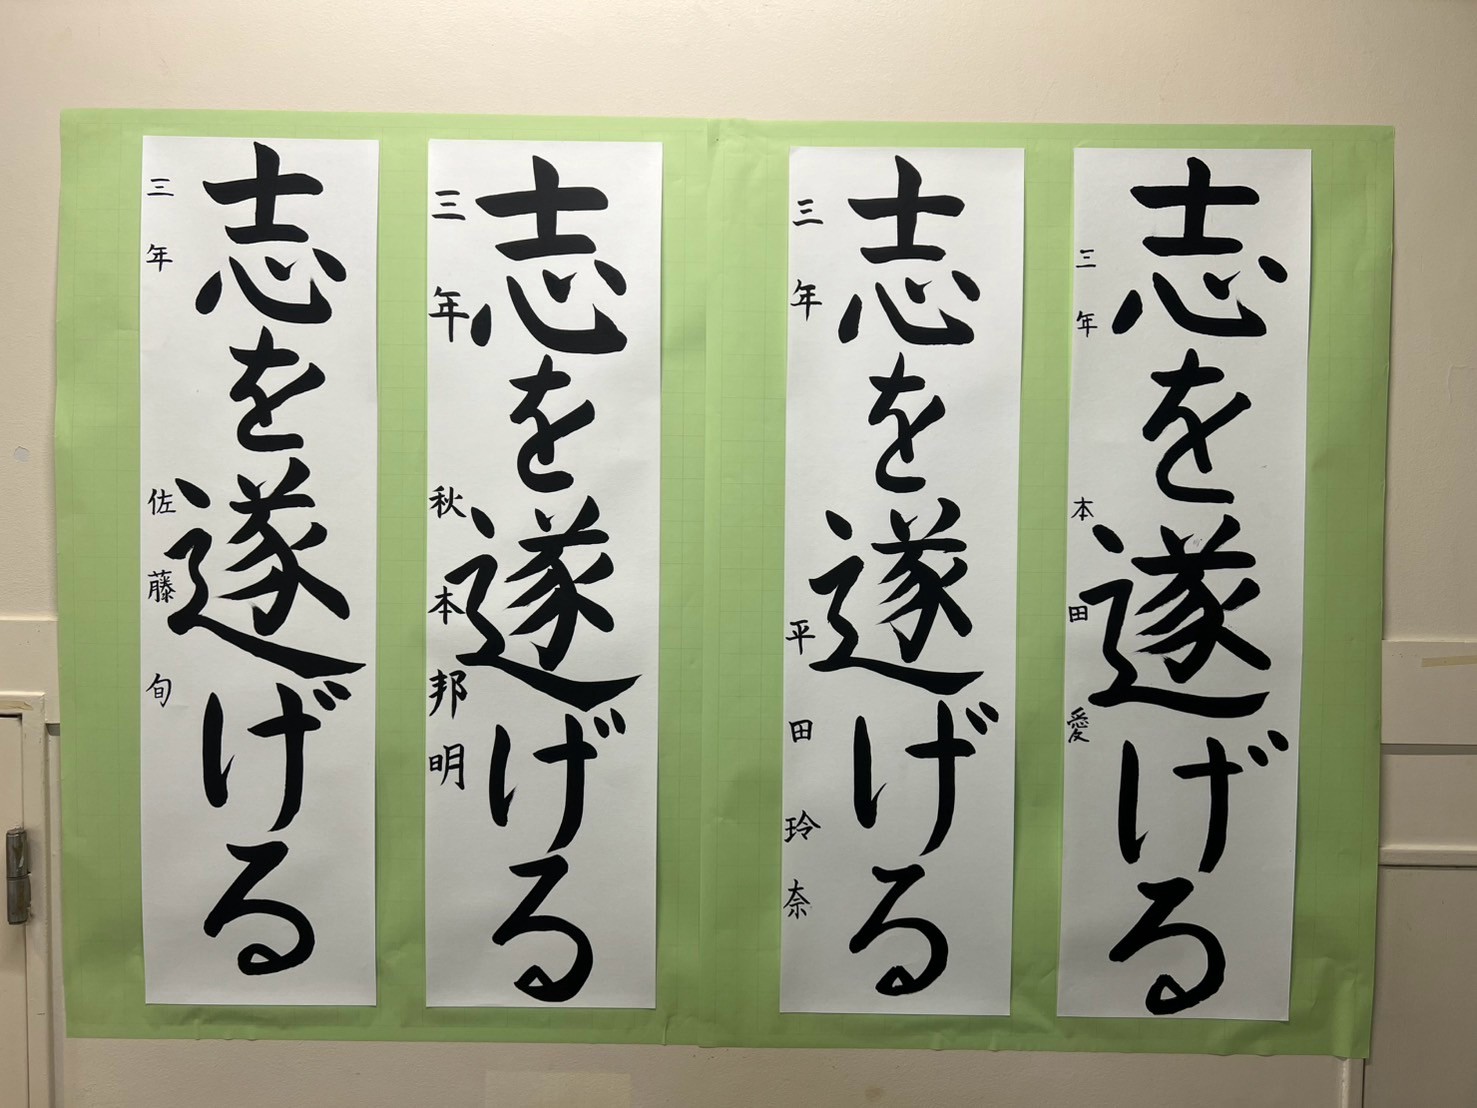 志を遂げる
三年 本田愛
志を遂げる
三年 平田玲奈
志を遂げる
三年 秋本邦明
志を遂げる
三年 佐藤旬